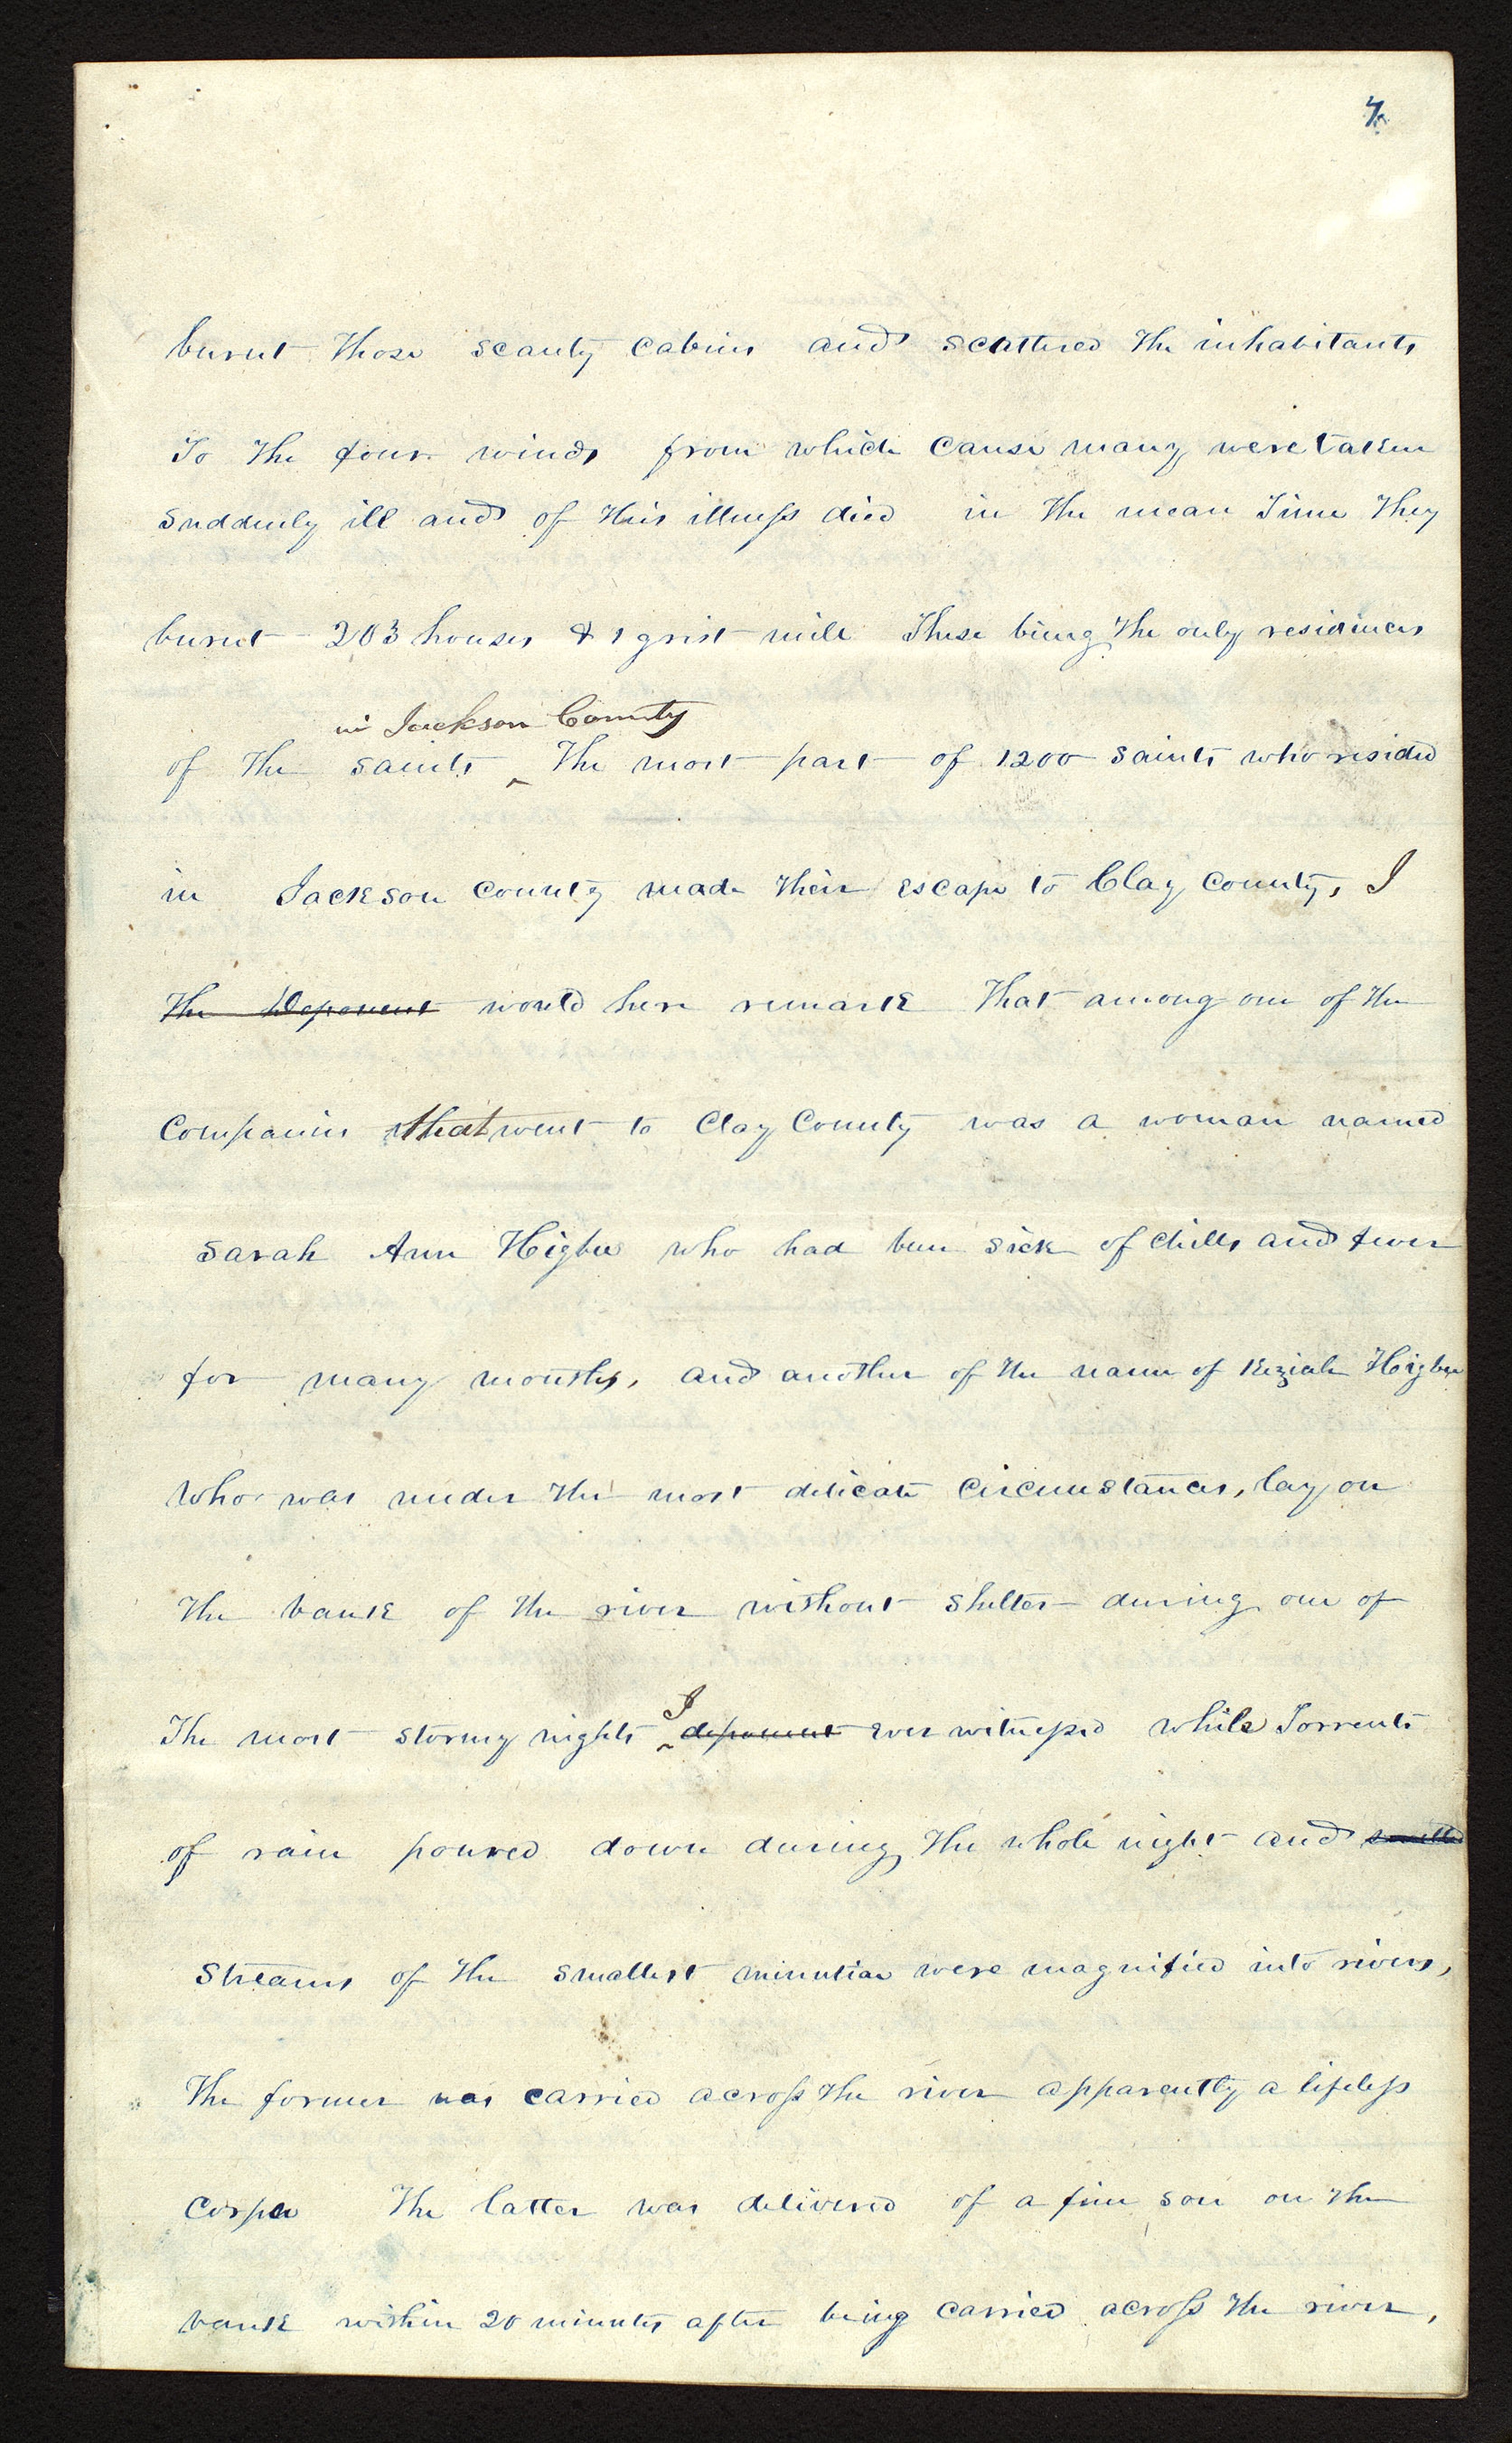 7.
burnt those scanty cabins and scattered the inhabitants
To the four winds from which cause many were taken
suddenly ill and of this illness died in the mean Time They
burnt 203 houses & 1 grist mill These being the only residences
in Jackson County
of the saints ^ The most part of 1200 saints who resided
in Jackson county made their escape to Clay County, I
the Deponent would here remark That among one of the
companies that went to Clay County was a woman named
Sarah Ann Higbee who had been sick of chills and fever
for many months, and another of the name of Keziah Higbee
who was under the most delicate circumstances, lay on
The bank of the river without shelter during one of
I
The most stormy nights ^ deponent ever witnessed while Torrents
of rain poured down during the whole night and
streams of the smallest minutiae were magnified into rivers,
The former was carried across the river apparently a lifeless
corpse The latter was delivered of a fine son on the
bank within 20 minutes after being carried across the river,